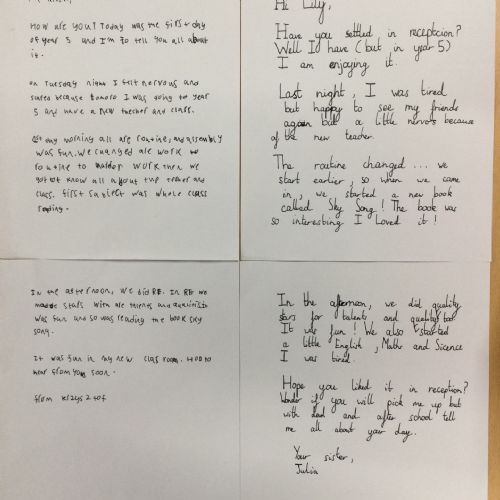 How are you? Today was the first day
of year 5 and I'm so tell you all about
it.
on Tuesday night I felt nervous and
scared because I was going to year
5 and have a new teacher and class.
day morning all are routine, my assembly
was fun. We changed are work
routine to work then we
got know all about the teacher and
class. first was whole class
reading.
In the afternoon, we did RE. In RE we
made stars with are talents and
was fun and so was reading the book sky
song.
It was fun in my new class room. Hop to
hear from you soon.
from
Hi Lily,
Have you settled in reception?
Well I have (but in year 5)
I am enjoying it.
Last night, I was tired
but happy to see my friends
again but a little nervous because
of the new teacher.
The routine changed... we
start earlier, so when we came
in, we started a new book
called Sky Song! The book was
so interesting I Loved it!
In the afternoon, we did quality
stars for talents and quality too
It was fun! We also started
a little English, Maths and Sicence
I was tired.
Hope you liked it in reception?
Wonder if you will pick me up but
with dad and after school tell
me all about your day.
Your sister,
Julia